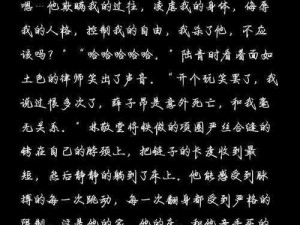 嗯…他欺瞒我的过往，凌虐我的身体，侮辱
我的人格，控制我的自由，我杀了他，不应
该吗？”“哈哈哈哈哈。”陆青时看着面如
土色的律师笑出了声音。“开个玩笑罢了，我
说过很多次了，薛子昂是意外死亡，和我毫
无关系。”林敬堂将铁做的项圈严丝合缝的
铐在自己的脖颈上，把链子的长度收到最
短，然后静静的躺到了床上。他能感受到脉
搏的每一次跳动，每一次翻身都受到严格的
限制